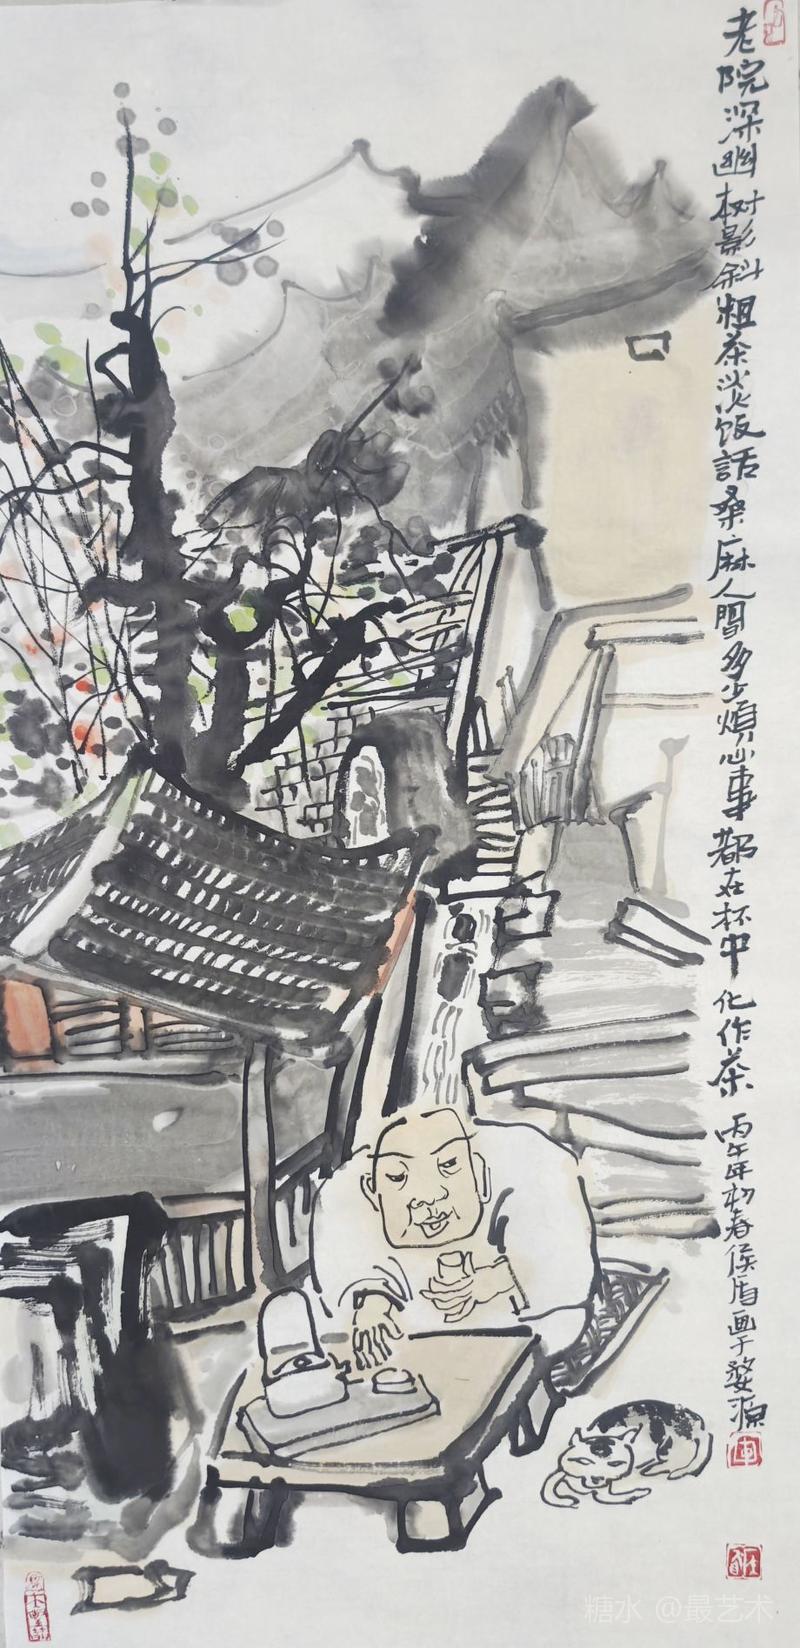 老院深幽树影斜粗茶淡饭話桑麻人間多少煩心事都在杯中化作茶
丙午年初春侯眉画于婺源
糖水 @最艺术